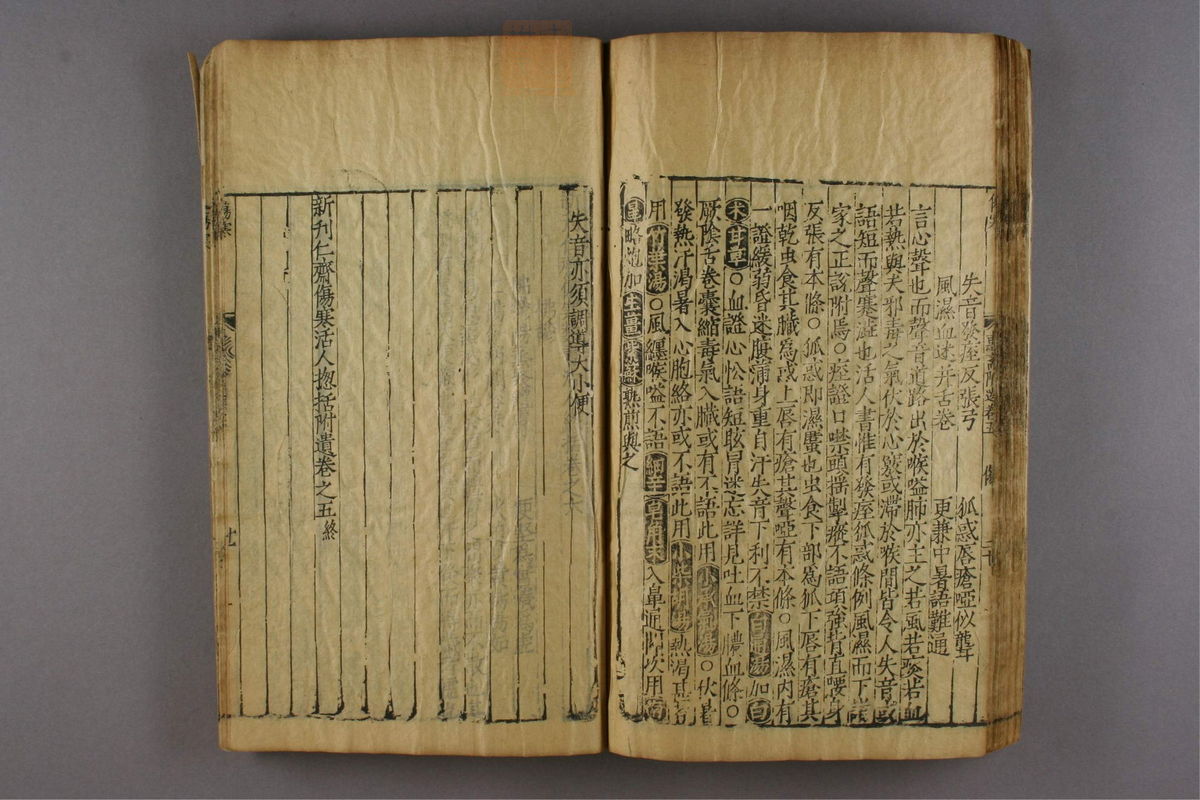 失音發痓反張弓　狐惑唇瘡啞似聾
風濕血迷并舌卷　更兼中暑語難通
言心聲也而聲音道路出於喉嗌肺亦主之若風若痰若血
若熱與夫邪毒之氣伏於心竅或滯於喉間皆令人失音或
語短而聲寒澁也活人書惟有發痓狐惑條例風濕而下諸
家之正該附焉○痓證口噤頭搖掣瘲不語項強背直腰身
反張有本條○狐惑即濕䘌也虫食下部為狐下唇有瘡其
咽乾虫食其臟為惑上唇有瘡其聲啞有本條○風濕内有
一證緩弱昏迷腹滿身重自汗失音下利不禁白通湯加白
术甘草○血證心忪語短眩冒迷忘詳見吐血下膿血條○
厥陰舌卷囊縮毒氣入臟或有不語此用小承氣湯○伏暑
發熱汗渴暑入心胞絡亦或不語此用小柴胡湯熱渴甚者
用竹葉湯○風纏喉嗌不語細辛皂角末入鼻近次用南
星略炮加生薑紫蘇熟煎與之
失音亦須調導大小便
新刊仁齋傷寒活人揔括附遺卷之五終